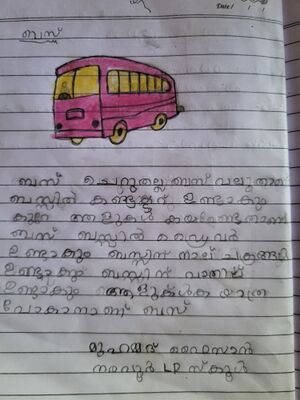 DATE
ബസ്സ്
ബസ് ചെറുതല്ല ബസ് വലുതാണ്
ബസ്സിൽ കണ്ടക്ടർ ഉണ്ടാകും
കുറേ ആളുകൾ കയറണ്ടതാണ്
ബസ് ബസ്സിൽ ഡ്രൈവർ
ഉണ്ടാകും ബസ്സിന് നാല് ചക്രങ്ങൾ
ഉണ്ടാകും ബസ്സിന് വാതിൽ
ഉണ്ടാകും ആളുകൾക്ക യാത്ര
പോകാനാണ് ബസ്
മുഹമ്മദ് ഫൈസാൻ
നരവൂർ LP സ്കൂൾ